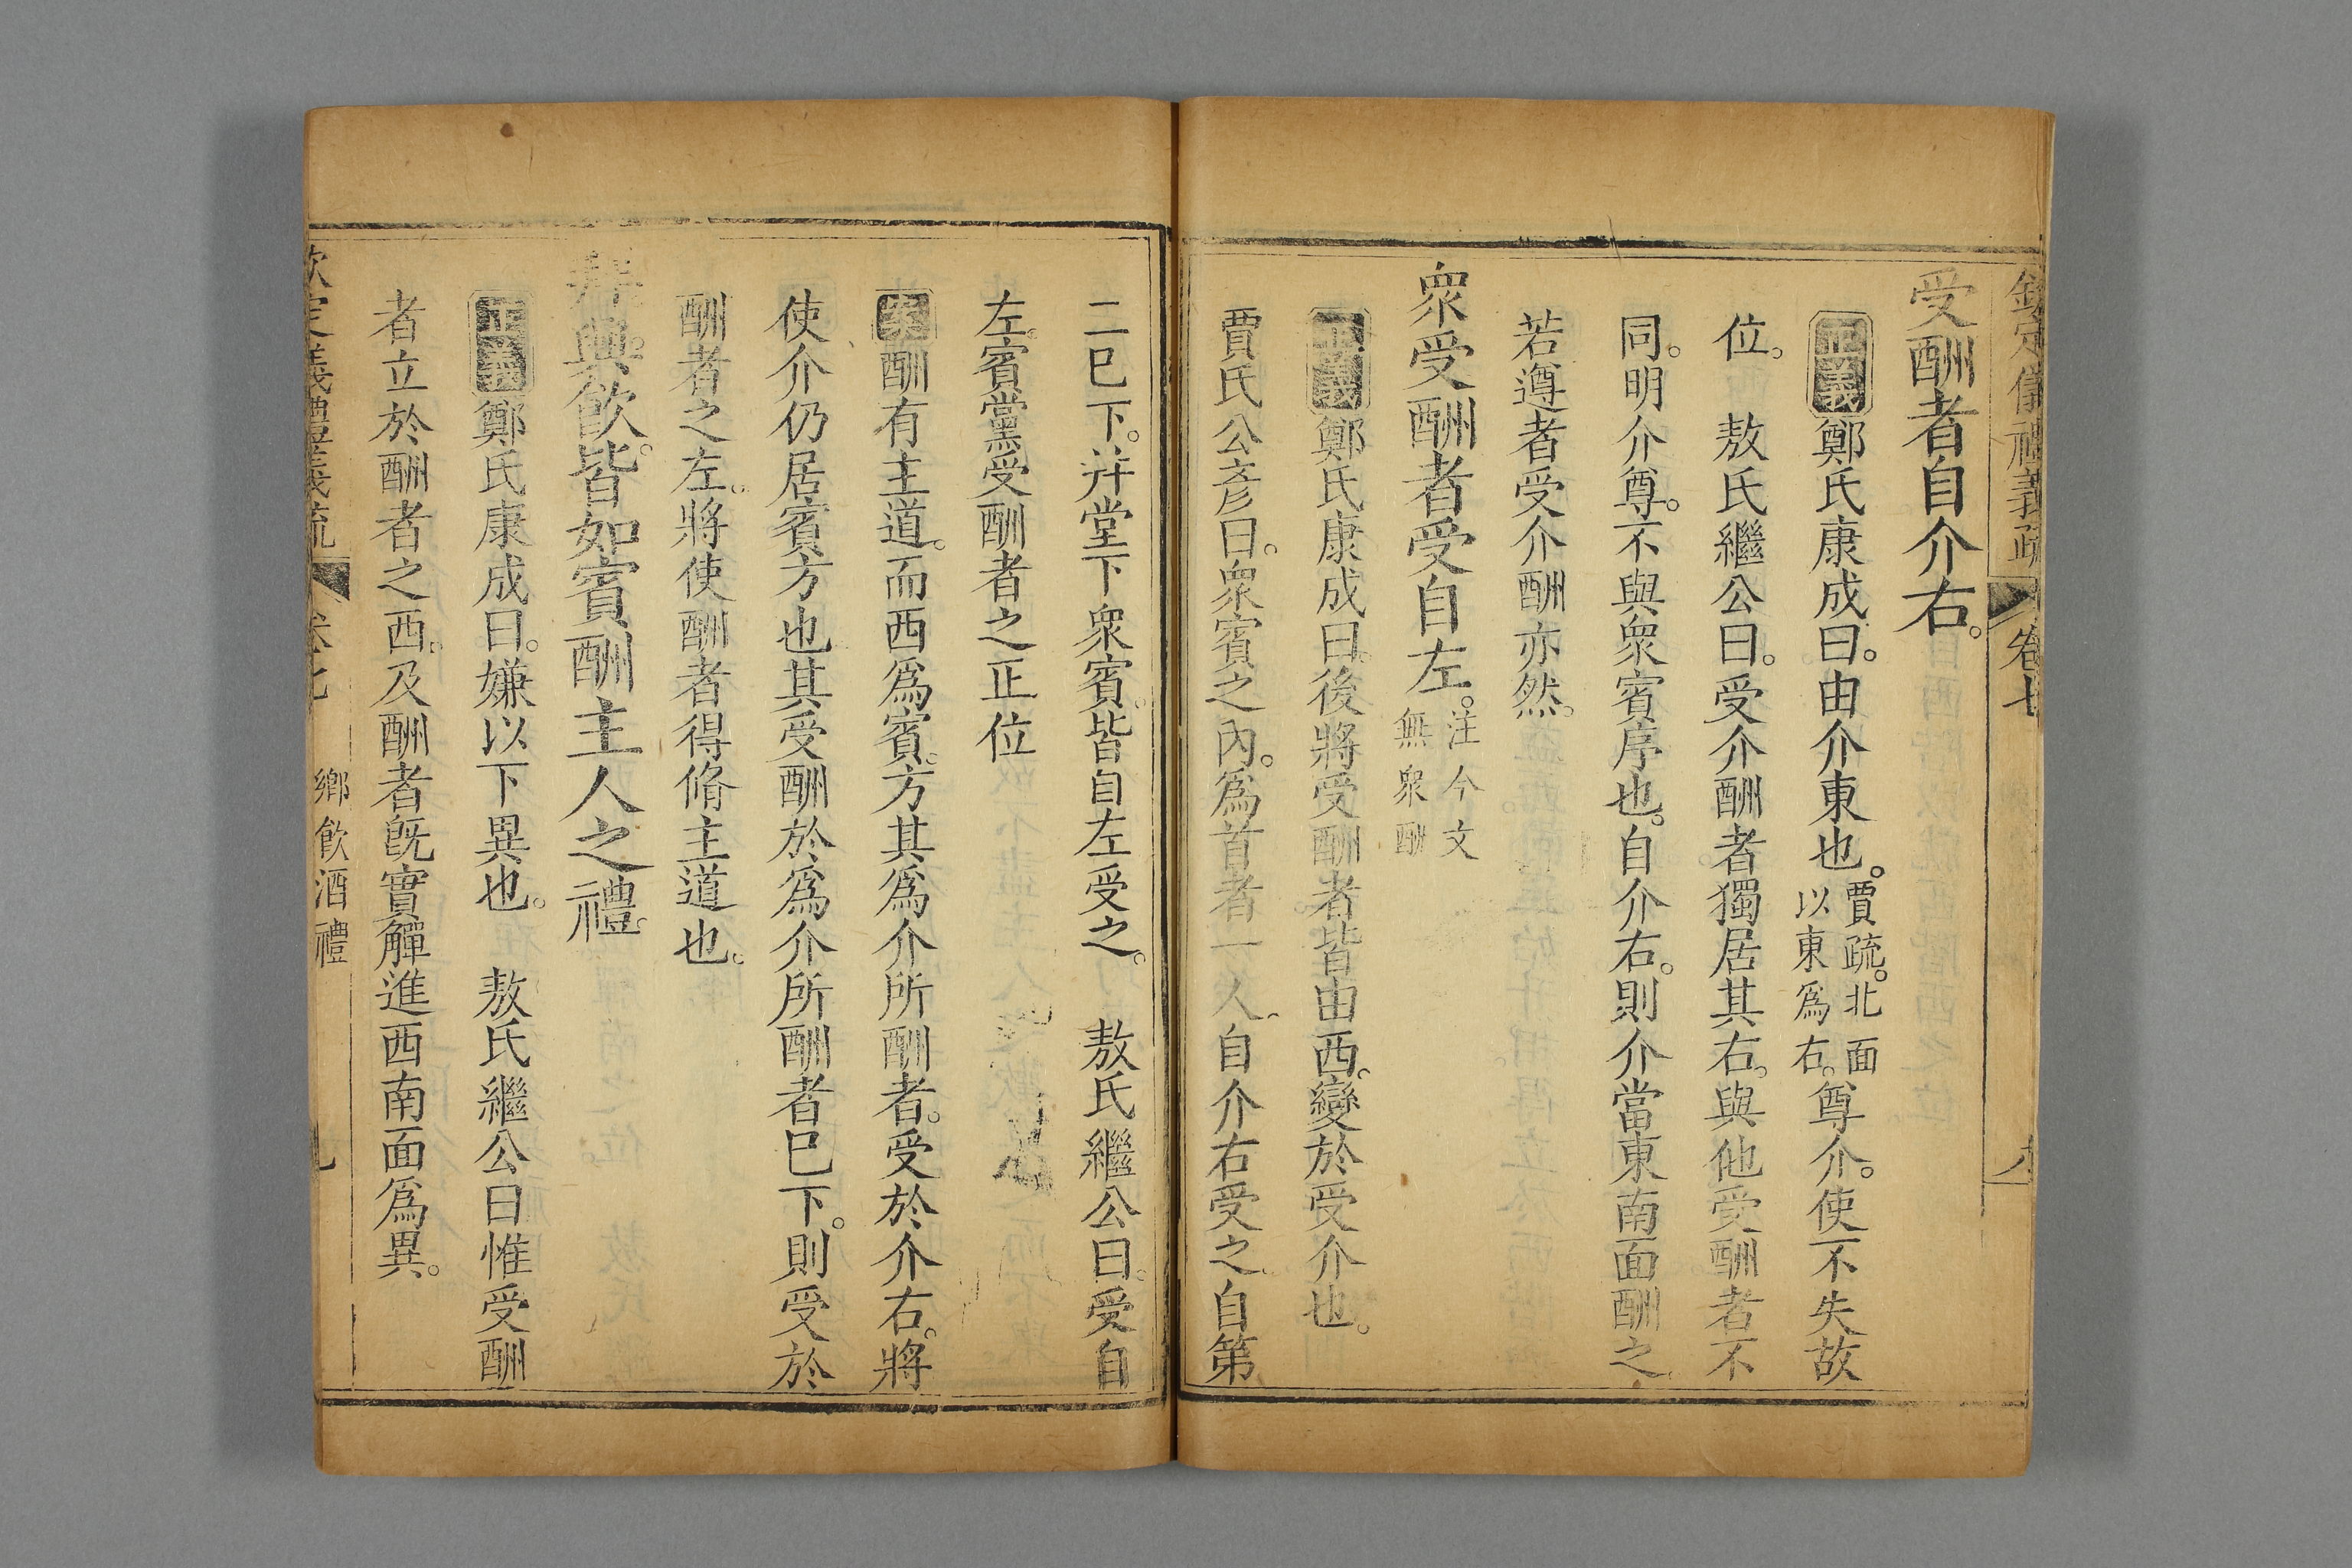 欽定儀禮義疏 卷七
受酬者自介右。
正義鄭氏康成曰。由介東也。賈疏。北面以東爲右。尊介。使不失故
位。 敖氏繼公曰。受介酬者獨居其右。與他受酬者不
同。明介尊。不與衆賓序也。自介右。則介當東南面酬之
若遵者受介酬亦然。
衆受酬者受自左。注今文無衆酬
正義鄭氏康成曰。後將受酬者皆由西。變於受介也。
賈氏公彥曰。衆賓之內。爲首者一人。自介右受之。自第
二已下。幷堂下衆賓。皆自左受之。 敖氏繼公曰。受自
左。賓黨受酬者之正位
案酬有主道。而西爲賓。方其爲介所酬者。受於介右。將
使介仍居賓方也其受酬於爲介所酬者已下。則受於
酬者之左。將使酬者得脩主道也。
拜。興。飲。皆如賓酬主人之禮。
正義鄭氏康成曰。嫌以下異也。 敖氏繼公曰惟受酬
者立於酬者之西。及酬者旣實觶進西南面爲異。
欽定儀禮義疏 卷七 鄉飲酒禮 九